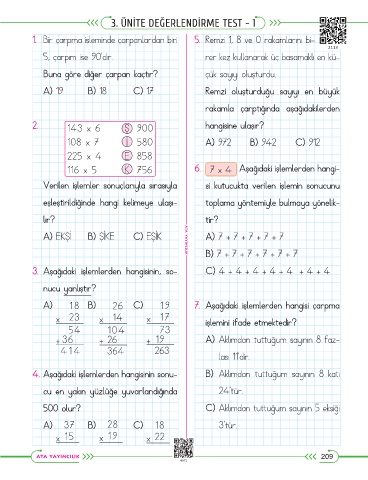 3. ÜNİTE DEĞERLENDİRME TEST - 1
1. Bir çarpma işleminde çarpanlardan biri
5, çarpım ise 90'dır.
Buna göre diğer çarpan kaçtır?
A) 19 B) 18 C) 17
2.
143 x 6 Ş 900
108 x 7 İ 580
225 x 4 E 858
116 x 5 K 756
Verilen işlemler sonuçlarıyla sırasıyla
eşleştirildiğinde hangi kelimeye ulaşı-
lır?
A) EKŞİ B) ŞİKE C) EŞİK
3. Aşağıdaki işlemlerden hangisinin, so-
nucu yanlıştır?
A) 18 B) 26 C) 19
x 23 x 14 x 17
54 104 73
+ 36 + 26 + 19
414 364 263
4. Aşağıdaki işlemlerden hangisinin sonu-
cu en yakın yüzlüğe yuvarlandığında
500 olur?
A) 37 B) 28 C) 18
x 15 x 19 x 22
5. Remzi 1, 8 ve 0 rakamlarını bi-
rer kez kullanarak üç basamaklı en kü-
çük sayıyı oluşturdu.
Remzi oluşturduğu sayıyı en büyük
rakamla çarptığında aşağıdakilerden
hangisine ulaşır?
A) 972 B) 942 C) 912
6. 7 x 4 Aşağıdaki işlemlerden hangi-
si kutucukta verilen işlemin sonucunu
toplama yöntemiyle bulmaya yönelik-
tir?
A) 7 + 7 + 7 + 7 + 7
B) 7 + 7 + 7 + 7 + 7 + 7
C) 4 + 4 + 4 + 4 + 4 + 4 + 4
7. Aşağıdaki işlemlerden hangisi çarpma
işlemini ifade etmektedir?
A) Aklımdan tuttuğum sayının 8 faz-
lası 11'dir.
B) Aklımdan tuttuğum sayının 8 katı
24'tür.
C) Aklımdan tuttuğum sayının 5 eksiği
3'tür.
ATA YAYINCILIK
209